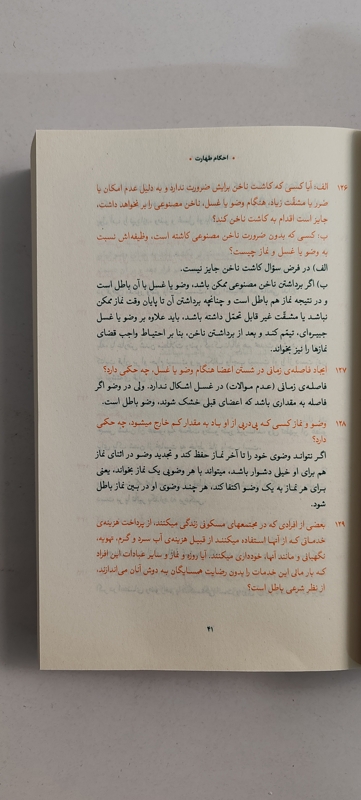 • احکام طهارت •
۱۲۶ الف؛ آیا کسی که کاشت ناخن برایش ضرورت ندارد و به دلیل عدم امکان یا
ضرر یا مشقّت زیاد، هنگام وضو یا غسل، ناخن مصنوعی را بر نخواهد داشت،
جایز است اقدام به کاشت ناخن کند؟
ب) کسی که بدون ضرورت ناخن مصنوعی کاشته است، وظیفه‌اش نسبت
به وضو یا غسل و نماز چیست؟
الف) در فرض سؤال کاشت ناخن جایز نیست.
ب) اگر برداشتن ناخن مصنوعی ممکن باشد، وضو یا غسل با آن باطل است
و در نتیجه نماز هم باطل است و چنانچه برداشتن آن تا پایان وقت نماز ممکن
نباشد یا مشقّت غیر قابل تحمّل داشته باشد، باید علاوه بر وضو یا غسل
جبیره‌ای، تیمّم کند و بعد از برداشتن ناخن، بنا بر احتیاط واجب قضای
نمازها را نیز بخواند.
۱۲۷ ایجاد فاصله‌ی زمانی در شستن اعضا هنگام وضو یا غسل، چه حکمی دارد؟
فاصله‌ی زمانی (عدم موالات) در غسل اشکال ندارد. ولی در وضو اگر
فاصله به مقداری باشد که اعضای قبلی خشک شوند، وضو باطل است.
۱۲۸ وضو و نماز کسی که پی‌درپی از او باد به مقدار کم خارج میشود، چه حکمی
دارد؟
اگر نتواند وضوی خود را تا آخر نماز حفظ کند و تجدید وضو در اثنای نماز
هم برای او خیلی دشوار باشد، میتواند با هر وضویی یک نماز بخواند، یعنی
برای هر نماز به یک وضو اکتفا کند، هر چند وضوی او در بین نماز باطل
شود.
۱۲۹ بعضی از افرادی که در مجتمعهای مسکونی زندگی میکنند، از پرداخت هزینه‌ی
خدماتی که از آنها استفاده میکنند از قبیل هزینه‌ی آب سرد و گرم، تهویه،
نگهبانی و مانند آنها، خودداری میکنند. آیا روزه و نماز و سایر عبادات این افراد
که بار مالی این خدمات را بدون رضایت همسایگان به دوش آنان می‌اندازند،
از نظر شرعی باطل است؟
۴۱